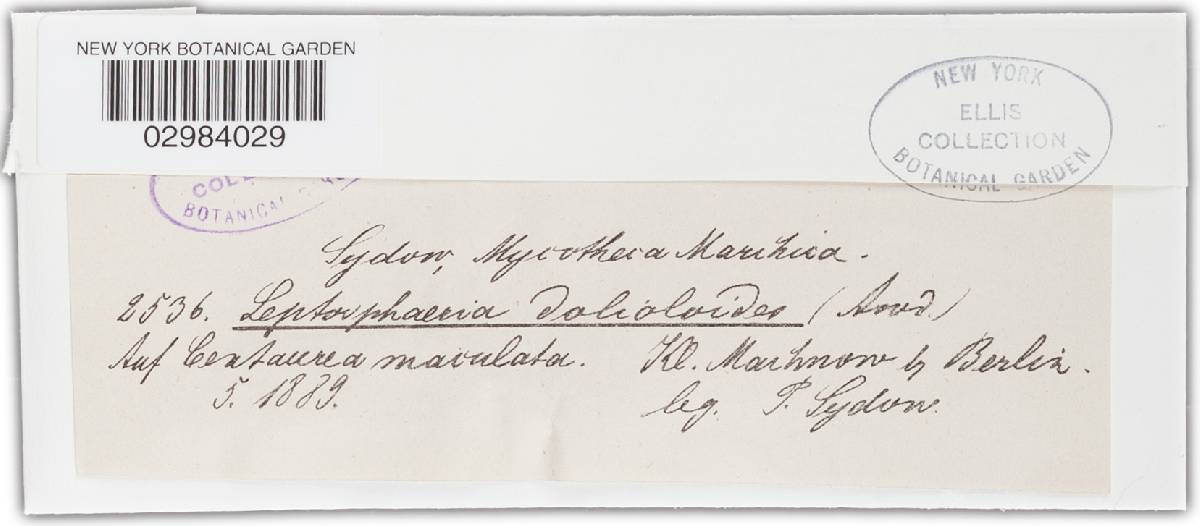 NEW YORK BOTANICAL GARDEN
02984029
NEW YORK
ELLIS
COLLECTION
BOTANICAL GARDEN
BOTANICAL
Sydow, Mycotheca Marchica.
2536. Leptosphaeria dolioloides (Awd.)
Auf Centaurea maculata. Kl. Machnow b Berlin.
5. 1889. leg. P. Sydow.